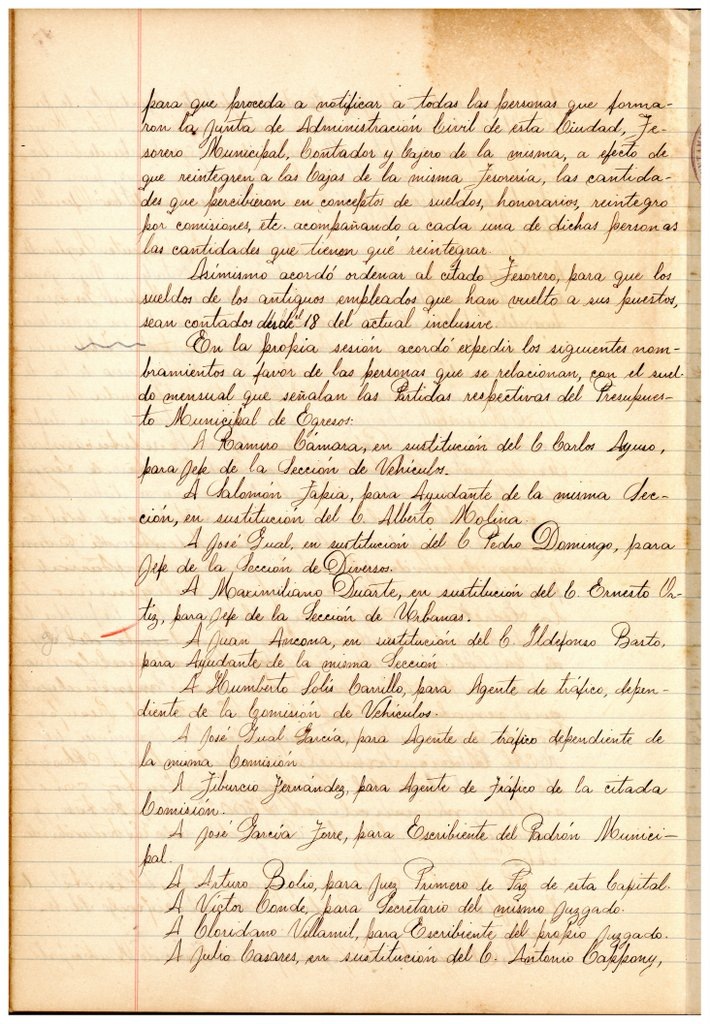 para que proceda a notificar a todas las personas que forma-
ron la Junta de Administración Civil de esta Ciudad, Te-
sorero Municipal, Contador y Cajero de la misma, a efecto de
que reintegren a las Cajas de la misma Tesorería, las cantida-
des que percibieron en conceptos de sueldos, honorarios, reintegro
por comisiones, etc. acompañando a cada una de dichas personas
las cantidades que tienen qué reintegrar.
Asimismo acordó ordenar al citado Tesorero, para que los
sueldos de los antiguos empleados que han vuelto a sus puestos,
sean contados desde el 18 del actual inclusive.
En la propia sesión acordó expedir los siguientes nom-
bramientos a favor de las personas que se relacionan, con el suel-
do mensual que señalan las Partidas respectivas del Presupues-
to Municipal de Egresos:
A Ramiro Cámara, en sustitución del C. Carlos
para Jefe de la Sección de Vehículos.
A Salomón Tapia, para Ayudante de la misma Sec-
ción, en sustitución del C. Alberto Molina.
A José Gual, en sustitución del C. Pedro Domingo, para
Jefe de la Sección de Diversos.
A Maximiliano Duarte, en sustitución del C. Ernesto Or-
tiz, para Jefe de la Sección de Urbanas.
A Juan Ancona, en sustitución del C. Ildefonso Basto,
para Ayudante de la misma Sección.
A Humberto Solís Carrillo, para Agente de tráfico, depen-
diente de la Comisión de Vehículos.
A José Gual García, para Agente de tráfico dependiente de
la misma Comisión
A Tiburcio Fernández, para Agente de Tráfico de la citada
Comisión.
A José García Torre, para Escribiente del Padrón Munici-
pal.
A Arturo Bolio, para Juez Primero de Paz de esta Capital.
A Víctor Conde, para Secretario del mismo Juzgado.
A Cloridano Villamil, para Escribiente del propio Juzgado.
A Julio Casares, en sustitución del C. Antonio Cappony,